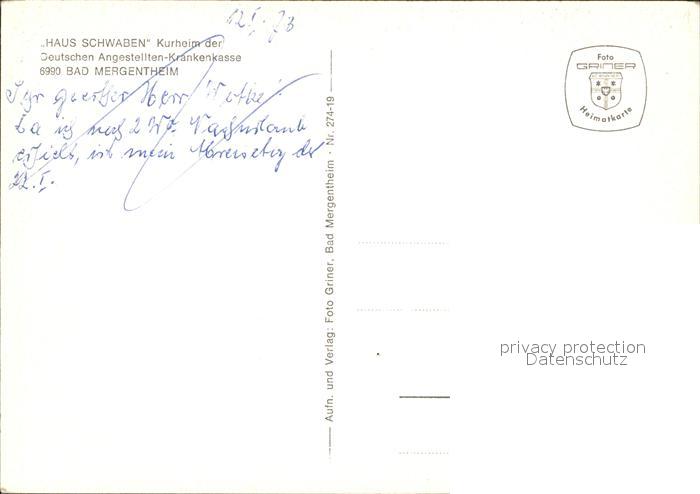 12.I.73
„HAUS SCHWABEN“ Kurheim der
Deutschen Angestellten-Krankenkasse
6990 BAD MERGENTHEIM
Sehr geehrter Herr
Da ich noch 2 Wo.
erhielt, ist mein der
22.I.
Aufn. und Verlag: Foto Griner, Bad Mergentheim · Nr. 274-19
Foto
GRINER
Heimatkarte
privacy protection
Datenschutz